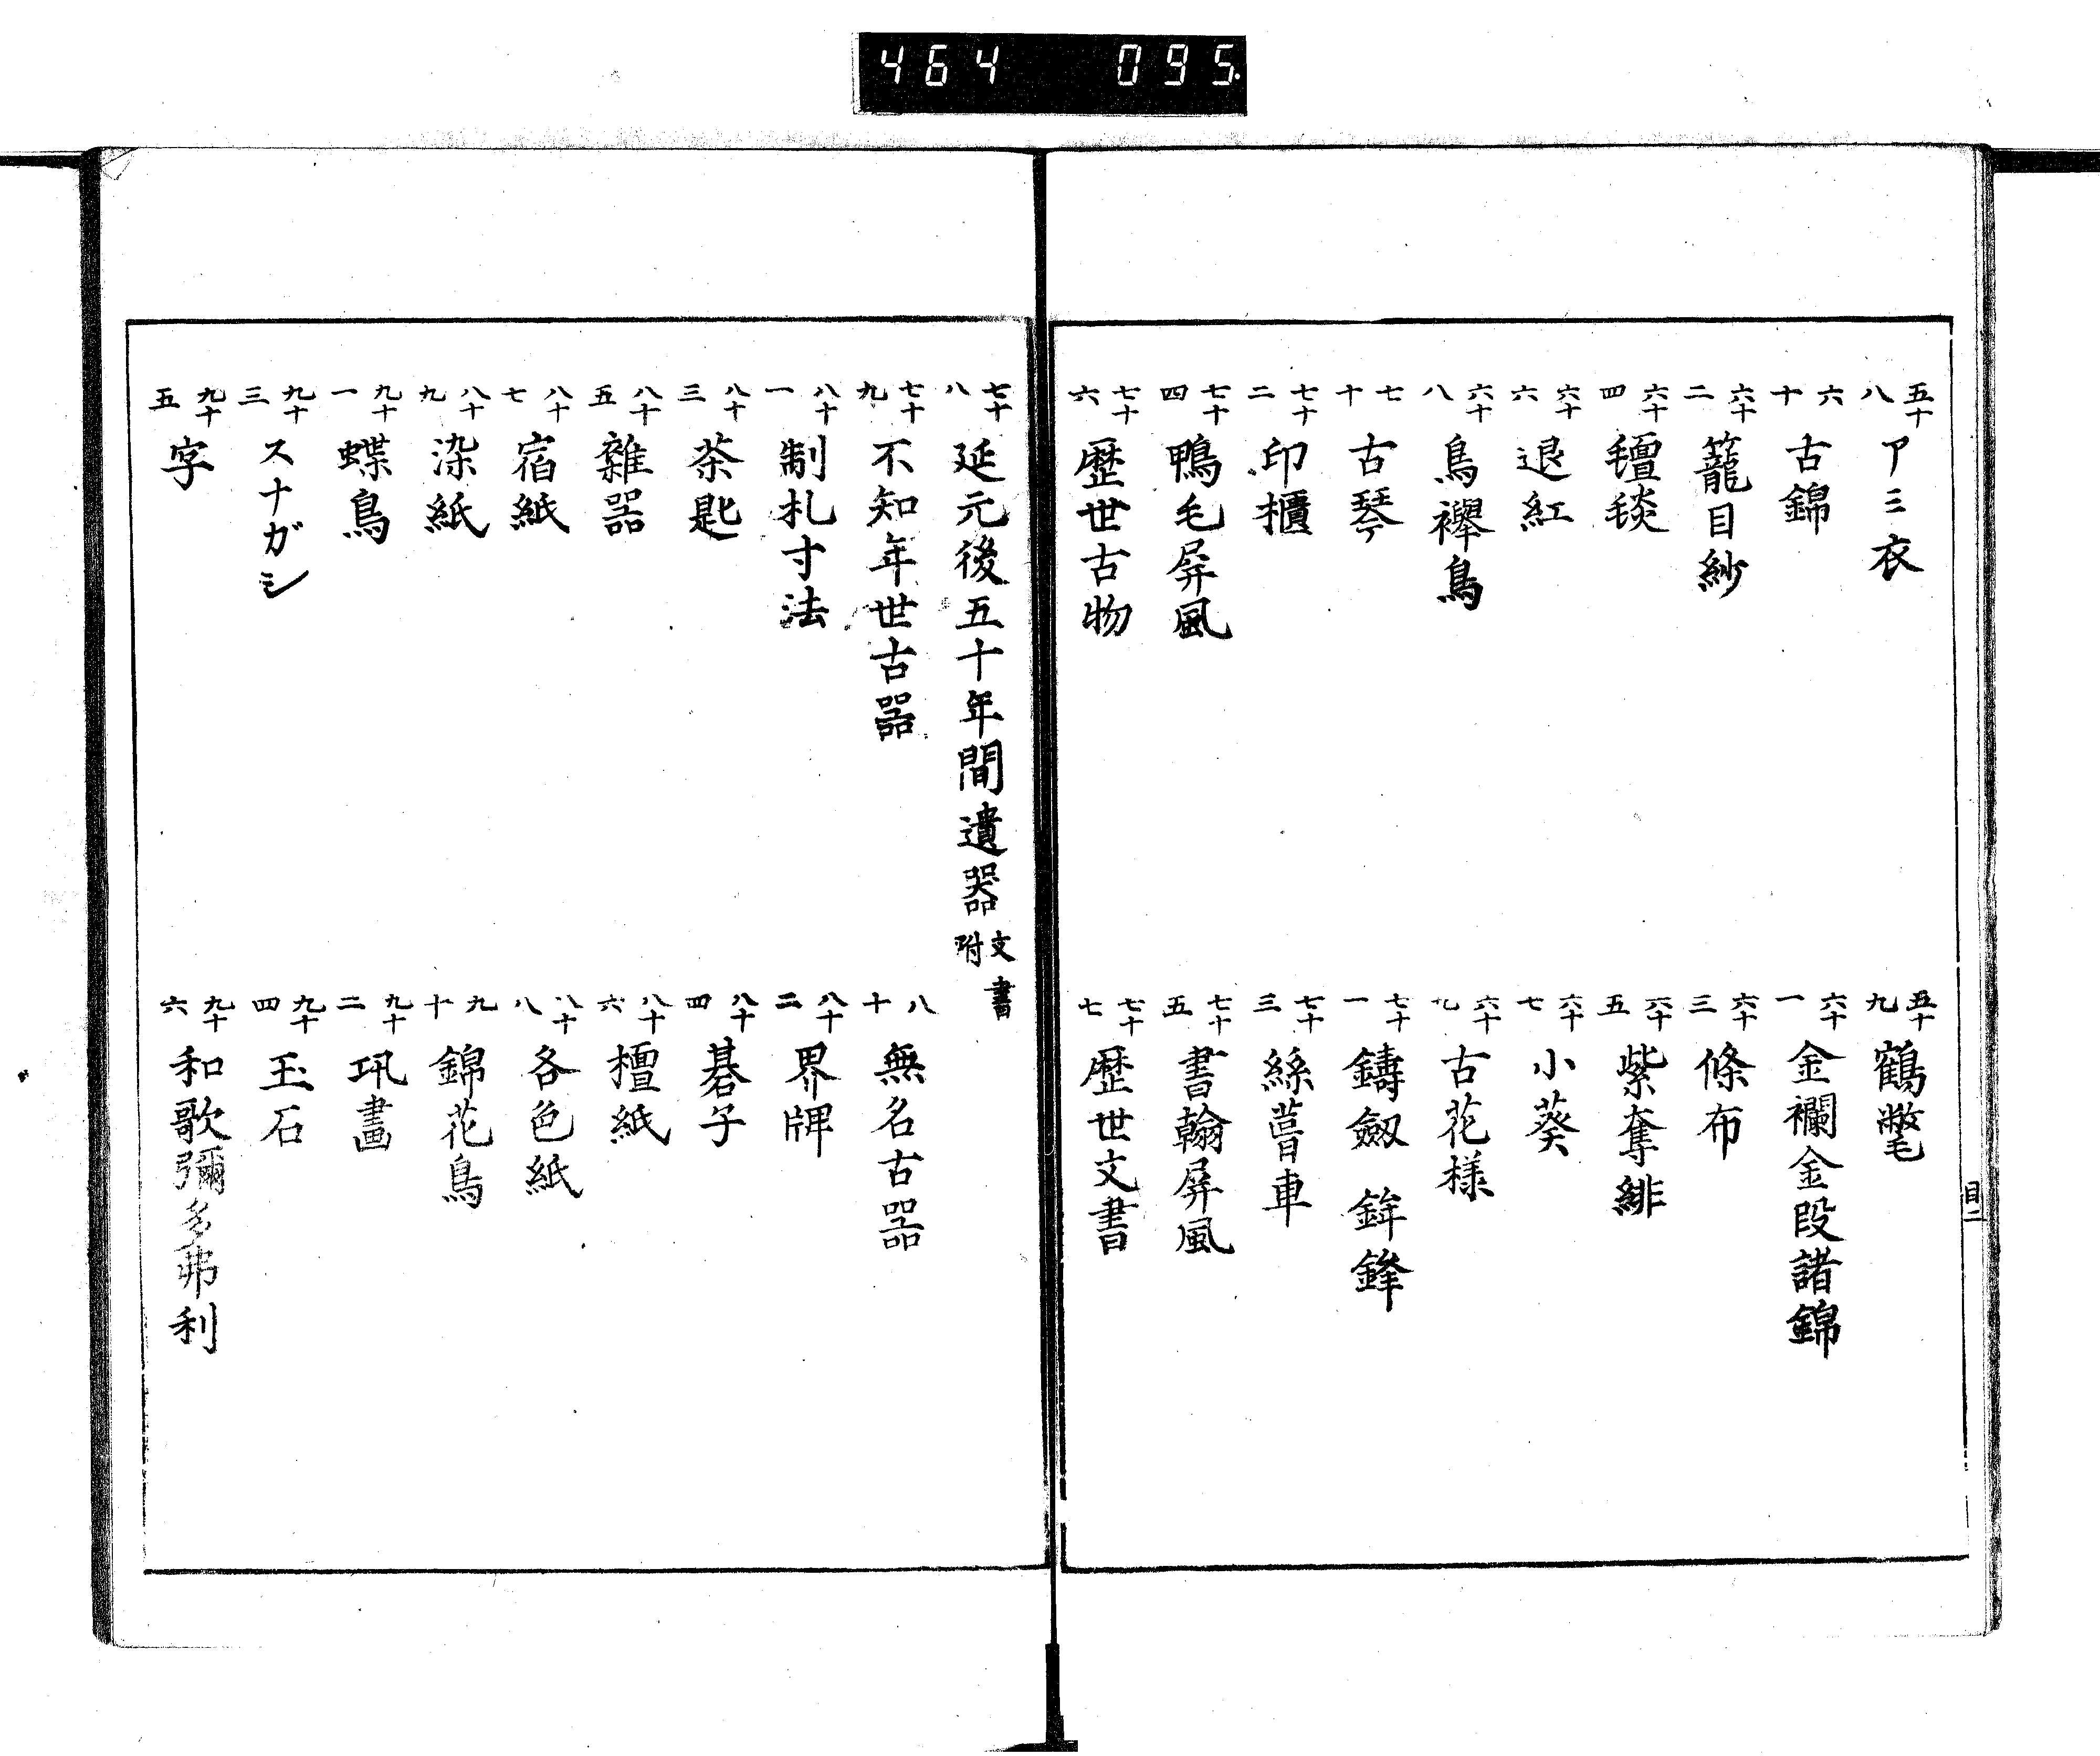 464 095
五十八 アミ衣
五十九 鶴氅
六十 古錦
六十一 金襴金段諸錦
六十二 籠目紗
六十三 條布
六十四 氊毯
六十五 紫奪緋
六十六 退紅
六十七 小葵
六十八 鳥襷鳥
六十九 古花様
七十 古琴
七十一 鑄劔 鉾鋒
七十二 印櫃
七十三 絲葺車
七十四 鴨毛屏風
七十五 書翰屏風
七十六 歴世古物
七十七 歴世文書
目二
七十八 延元後五十年間遺器 文書附
七十九 不知年世古器
八十 無名古器
八十一 制札寸法
八十二 界牌
八十三 茶匙
八十四 碁子
八十五 雜器
八十六 檀紙
八十七 宿紙
八十八 各色紙
八十九 染紙
九十 錦花鳥
九十一 蝶鳥
九十二 巩畫
九十三 スナガシ
九十四 玉石
九十五 字
九十六 和歌彌多弗利